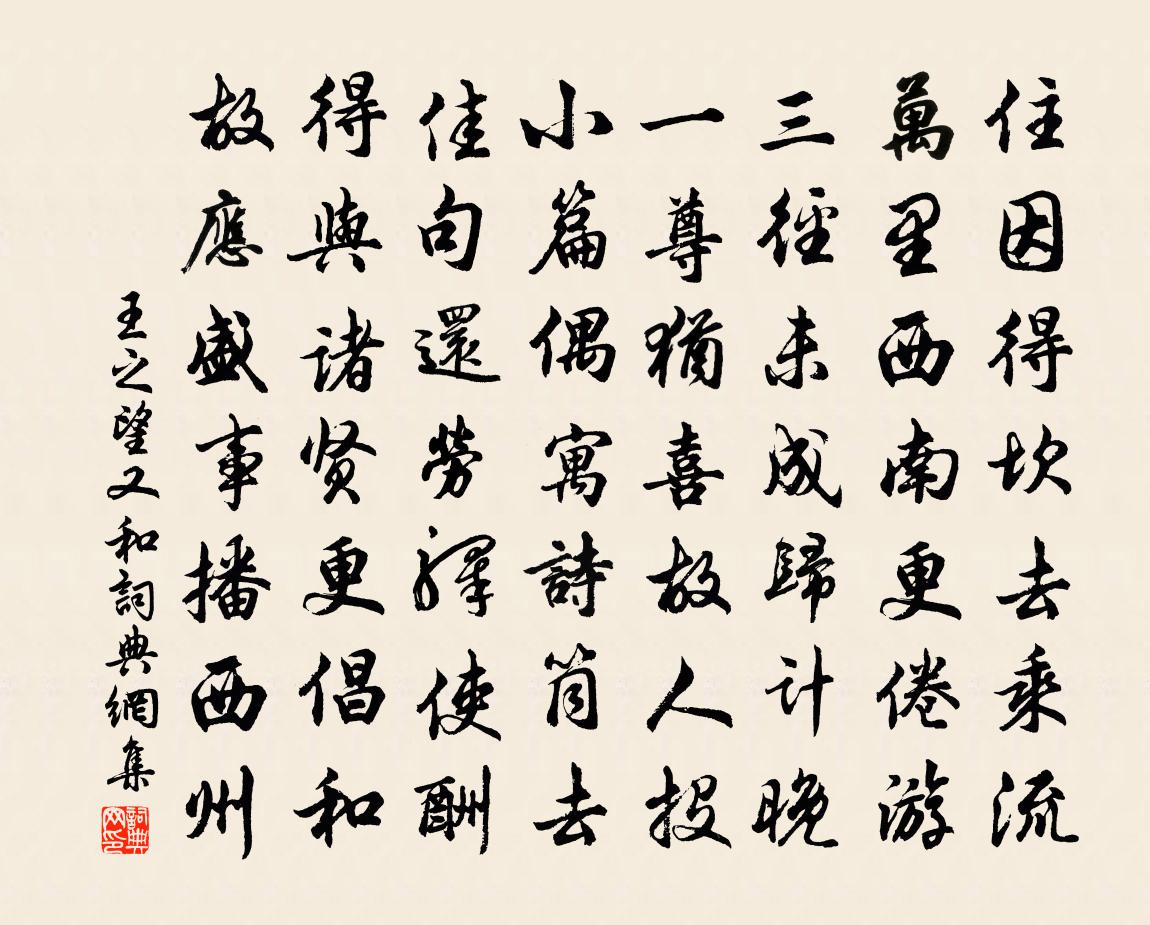 住因得坎去乘流
萬里西南更倦游
三徑未成歸计晚
一尊猶喜故人投
小篇偶寓詩筒去
佳句還勞驛使酬
得與諸贤更倡和
故應盛事播西州
王之望又和詞典網集
詞典網印